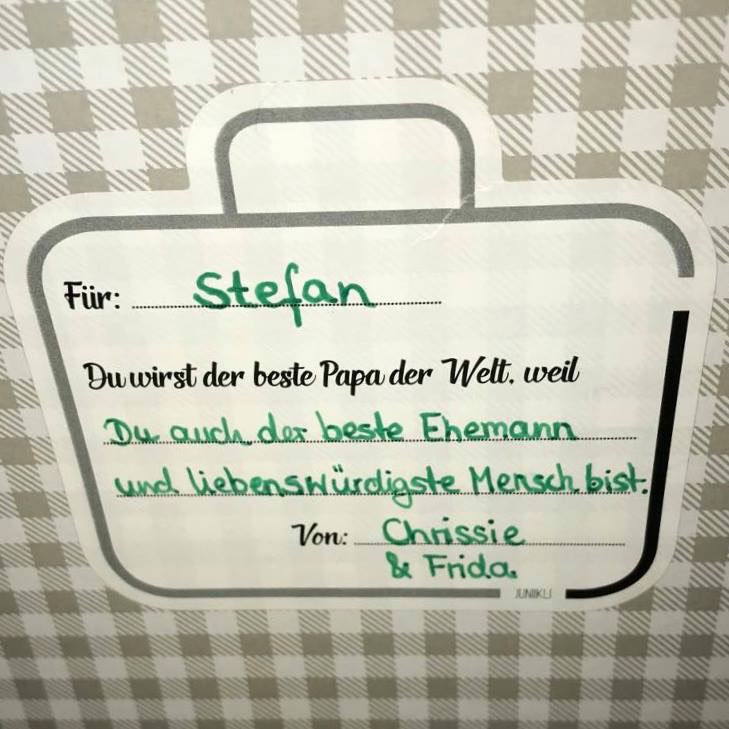 Für: Stefan
Du wirst der beste Papa der Welt, weil
Du auch der beste Ehemann
und liebenswürdigste Mensch bist.
Von: Chrissie
& Frida
JUNIIKLI